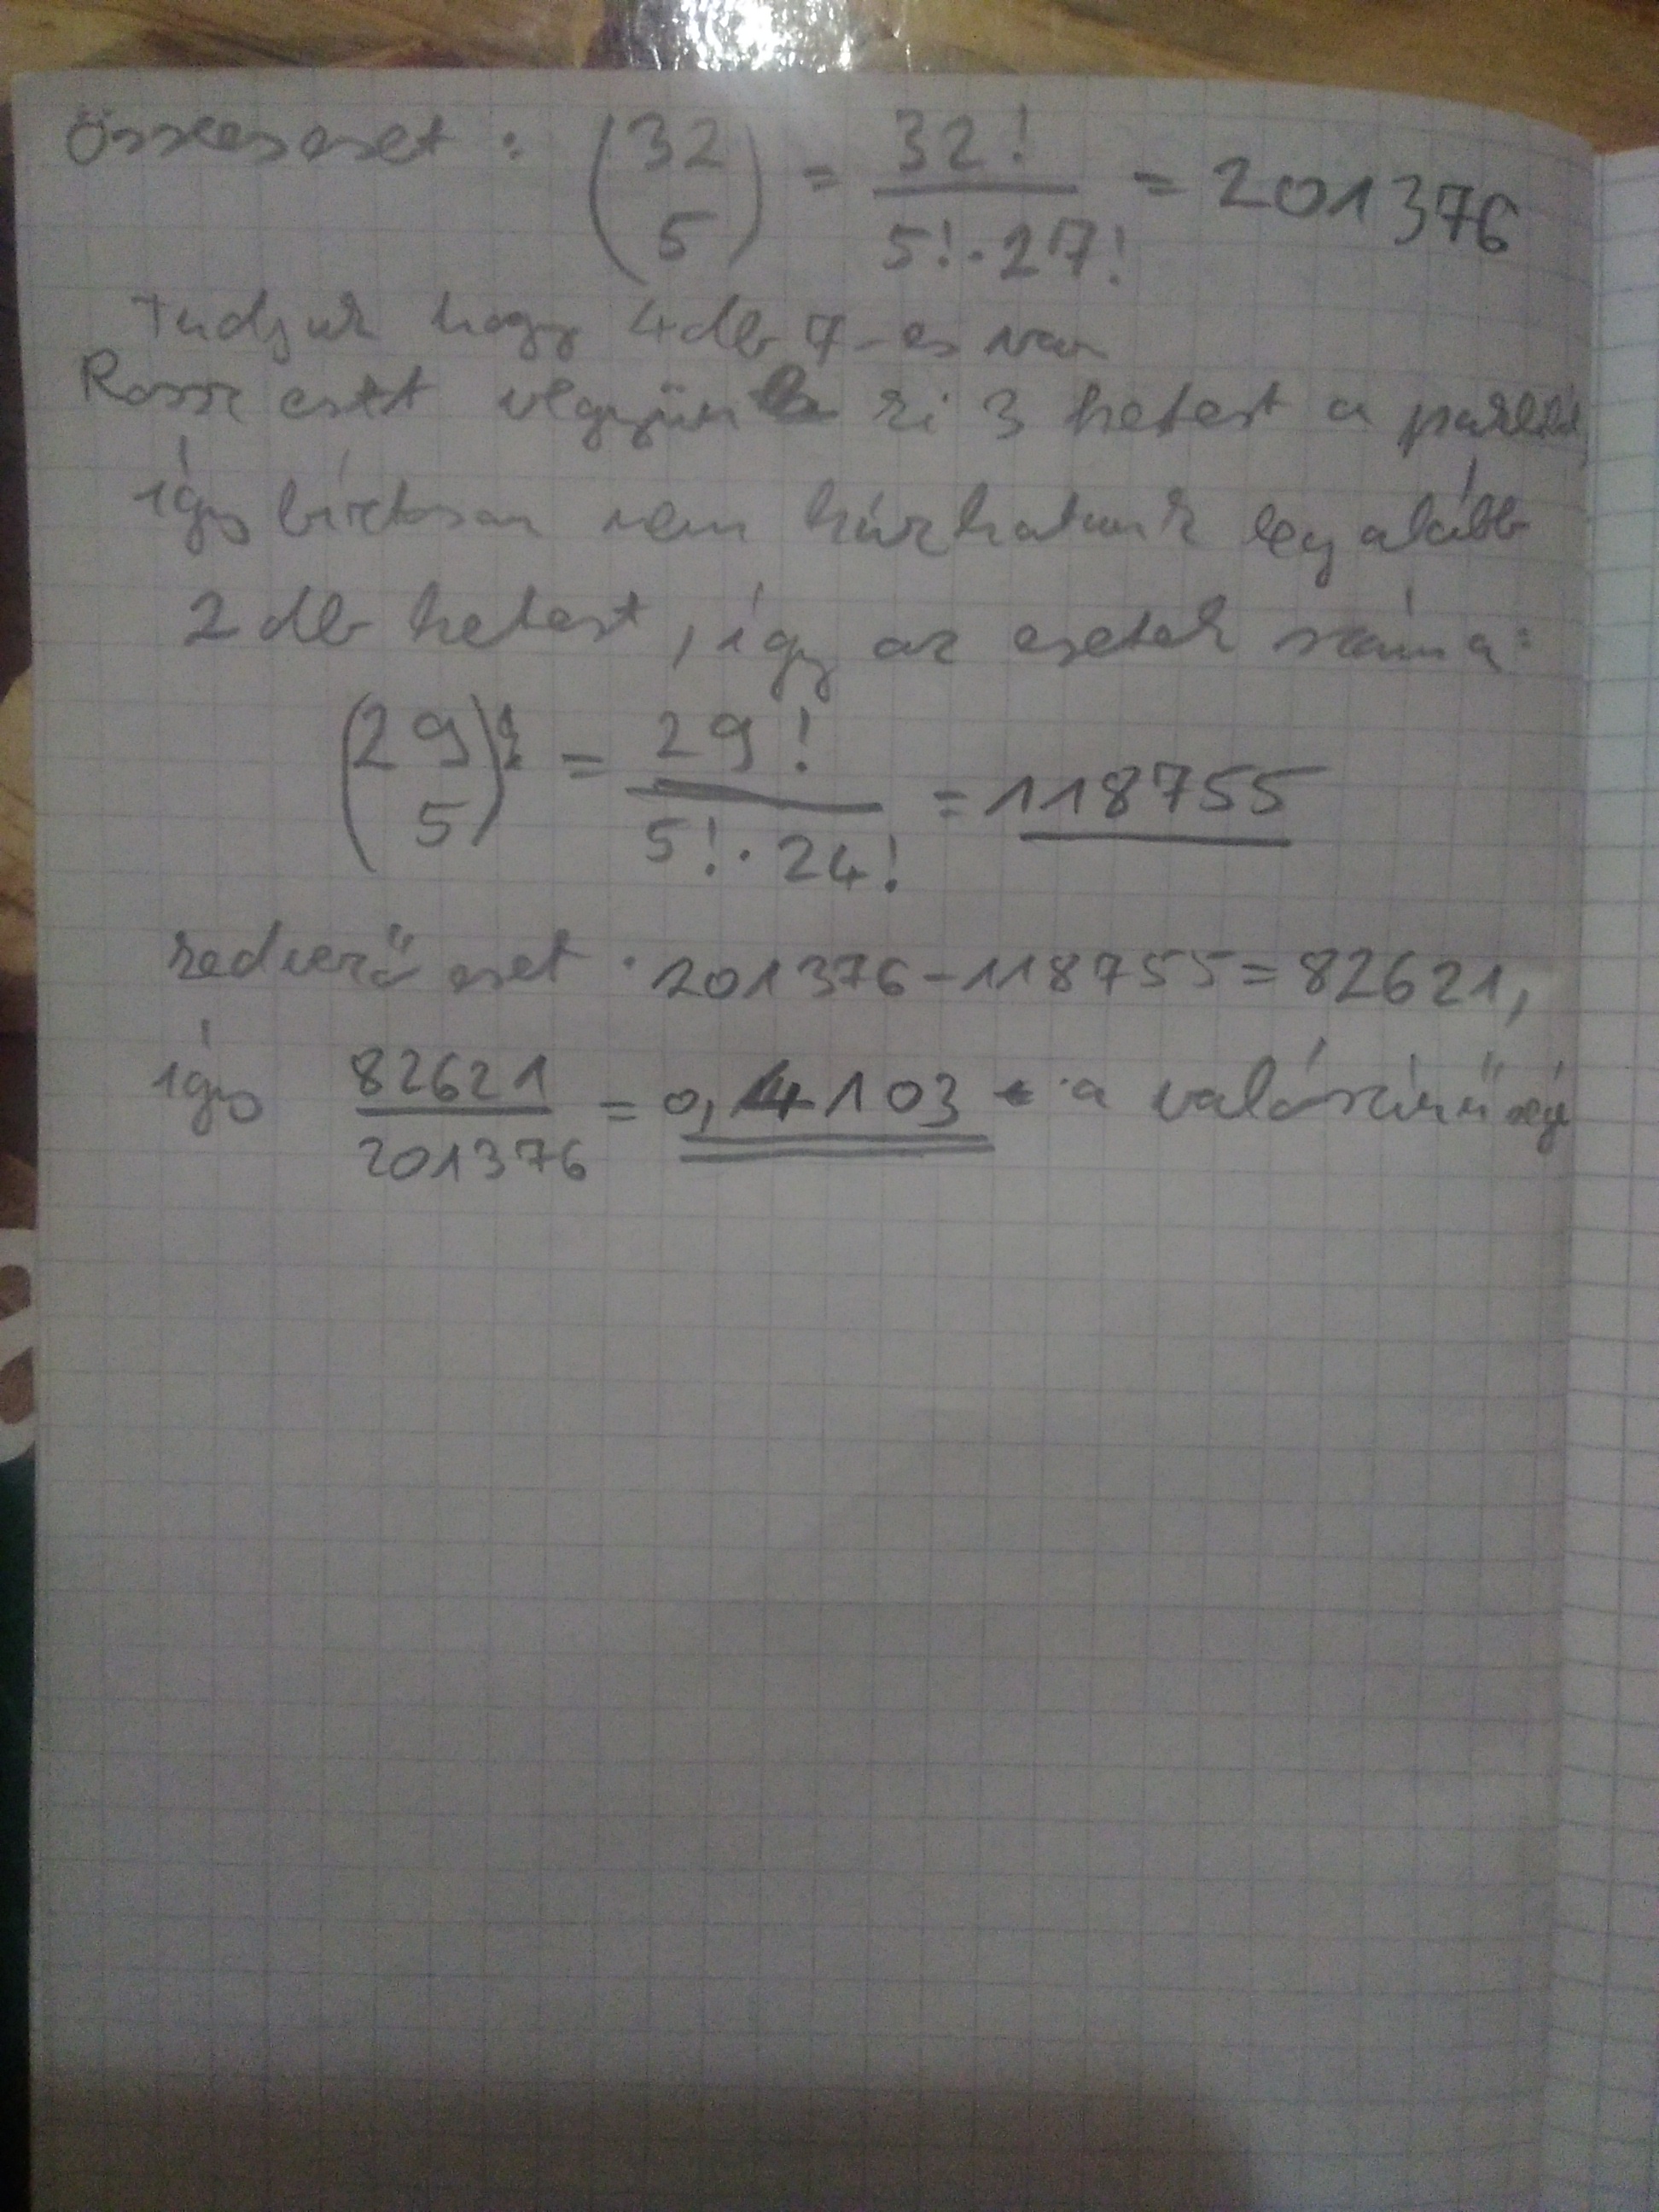 összes eset : (32 5) = 32! / 5!·27! = 201376
Tudjuk hogy 4db 7-es van
Rossz eset vegyünk ki 3 hetest a pakliból,
így biztosan nem húzhatunk legalább
2 db hetest, így az esetek száma:
(29 5) = 29! / 5!·24! = 118755
kedvező eset : 201376-118755=82621,
így 82621 / 201376 = 0,4103 a valószínűsége